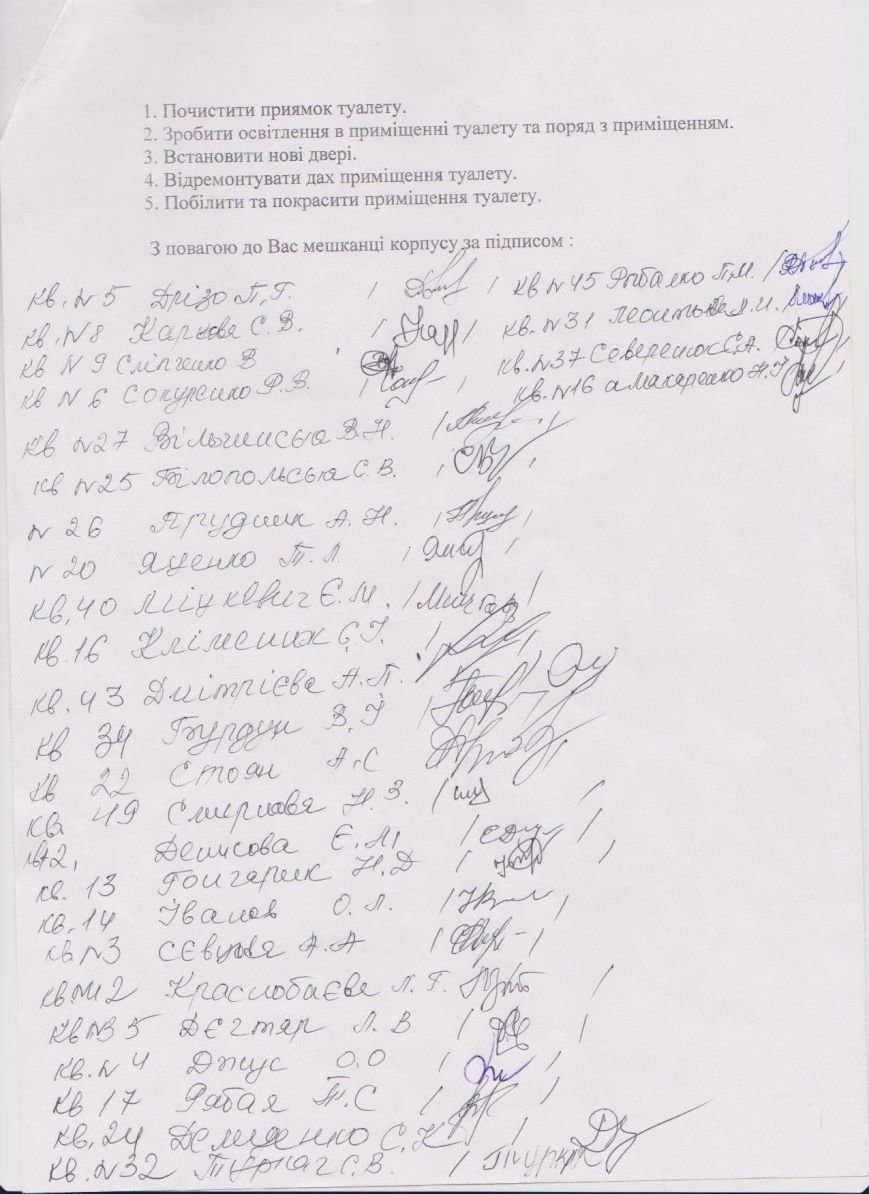 1. Почистити приямок туалету.
2. Зробити освітлення в приміщенні туалету та поряд з приміщенням.
3. Встановити нові двері.
4. Відремонтувати дах приміщення туалету.
5. Побілити та покрасити приміщення туалету.
З повагою до Вас мешканці корпусу за підписом :
кв. №5 Дрізо П.Г. / / кв №45 Рибалко П.М. /
кв. №8 Каркова С. В. / / кв. №31
кв №9 Сліпченко В кв. №37 Северенюк С.А.
кв №6 Сокуренко Р.В. / кв. №16 а Макаренко Н.І
кв №27 Вільчинська В.Н. /
кв №25 Білопольська С. В. / /
№ 26 Прудник А. Н. / /
№ 20 Яценко Т. Л. / /
кв. 40 Міцкевич Є. М. / /
кв. 16 Кліменюк Є. І. / /
кв. 43 Дмітрієва А. П. /
кв 34 Бурдун В. І
кв 22 Стоян А. С
кв 49 Смирнова Н. З. / /
Денисова Є. М / /
кв. 13 Гончарик Н. Д / /
кв. 14 Іванов О. Л. / /
кв №3 А. А / /
кв. №12 Краснобаєва Л. Г. /
кв №35 Дєгтяр Л. В / /
кв. №4 Джус О. О / /
кв 17 Рябая Т. С / /
кв. 24 Демиденко С. К / /
кв. №32 С. В. /